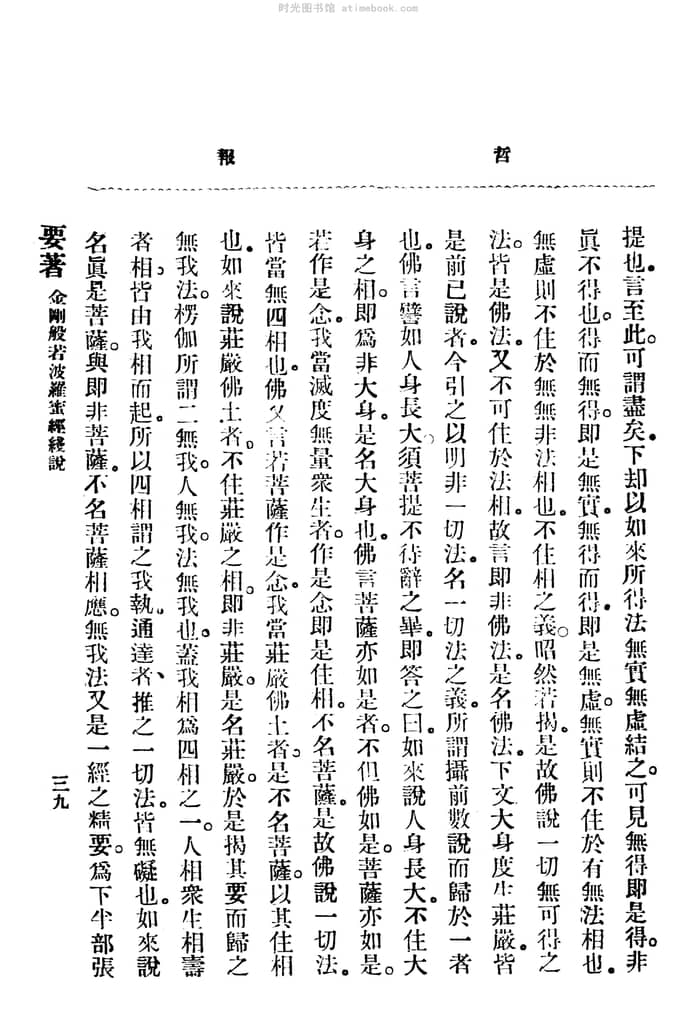 时光图书馆 atimebook.com
哲
報
提也。言至此。可謂盡矣。下却以如來所得法無實無虛結之。可見無得即是得。非
眞不得也。得而無得。即是無實。無得而得。即是無虛。無實則不住於有無法相也。
無虛則不住於無無非法相也。不住相之義。昭然若揭。是故佛說一切無可得之
法。皆是佛法。又不可住於法相。故言即非佛法。是名佛法。下文大身度生莊嚴。皆
是前已說者。今引之以明非一切法。名一切法之義。所謂攝前數說而歸於一者
也。佛言譬如人身長大。須菩提不待辭之畢。即答之曰。如來說人身長大。不住大
身之相。即爲非大身。是名大身也。佛言菩薩亦如是者。不但佛如是。菩薩亦如是。
若作是念。我當滅度無量衆生者。作是念即是住相。不名菩薩。是故佛說一切法。
皆當無四相也。佛又言若菩薩作是念。我當莊嚴佛土者。是不名菩薩。以其住相
也。如來說莊嚴佛土者。不住莊嚴之相。即非莊嚴。是名莊嚴。於是揭其要而歸之
無我法。楞伽所謂二無我。人無我。法無我也。蓋我相爲四相之一。人相衆生相壽
者相。皆由我相而起。所以四相謂之我執。通達者、推之一切法。皆無礙也。如來說
名眞是菩薩。與即非菩薩。不名菩薩相應。無我法又是一經之精要。爲下半部張
要著 金剛般若波羅蜜經綫說
三九